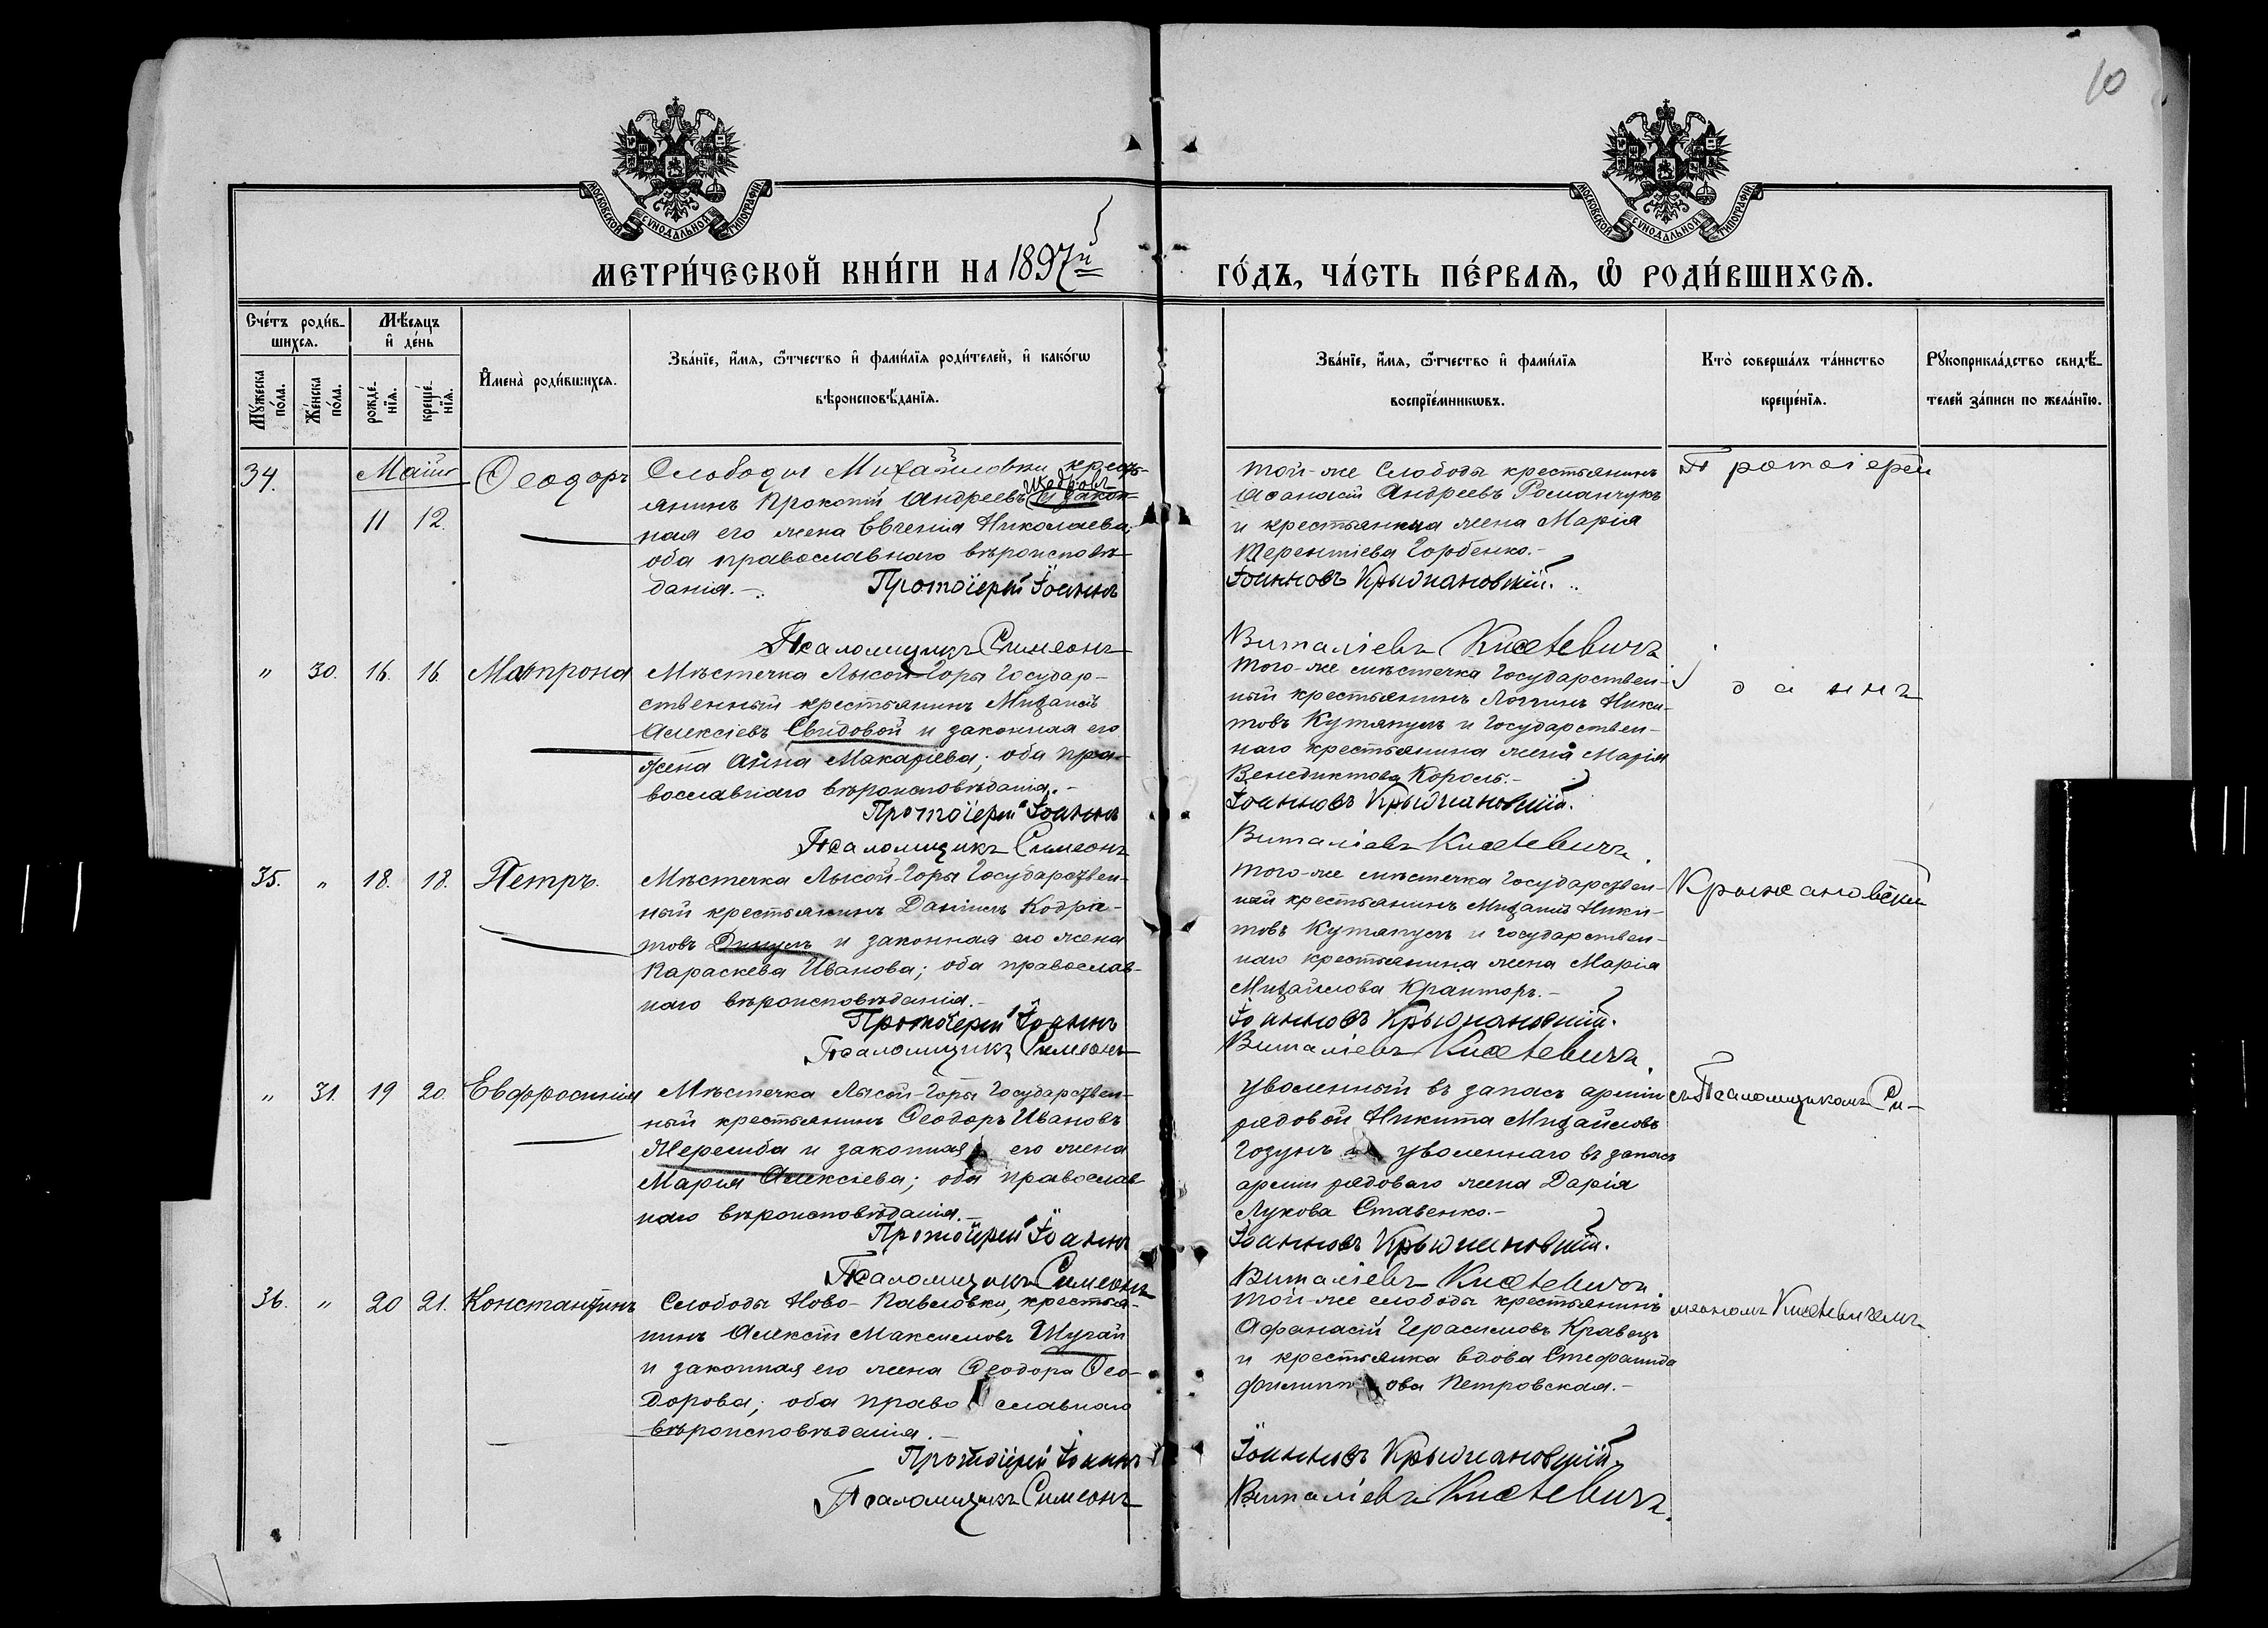 10
МОСКОВСКОЙ СѴНОДАЛЬНОЙ ТИПОГРАФІИ.
МОСКОВСКОЙ СѴНОДАЛЬНОЙ ТИПОГРАФІИ.
МЕТРИ́ЧЕСКОЙ КНИ́ГИ НА 1897й
ГО́ДЪ, ЧА́СТЬ ПЕ́РВАЯ, Ѡ РОДИ́ВШИХСЯ.
Сче́тъ роди́в-
шихся.
Мѣсяцъ
и де́нь
Мꙋ́жеска по́ла.
Же́нска по́ла.
рожде́-нїя.
креще́-нїя.
Имена̀ роди́вшихся.
Зва́нїе, и́мя, ѻ́тчество и фами́лїя роди́телей, и како́гѡ
вѣроисповѣ́данїя.
Зва́нїе, и́мя, ѻ́тчество и фами́лїя
воспрїе́мникѡвъ.
Кто̀ соверша́лъ та́инство
креще́нїя.
Рꙋкоприкла́дство свидѣ́-
телей за́писи по жела́нїю.
34.
Маій
11 12.
Ѳеодоръ
Слободы Михайловки кресть-
янинъ Прокопій Андреевъ и закон-
ная его жена Евгенія Николаева;
оба православнаго вѣроисповѣ-
данія.-
Протоіерей Іоаннъ
Псаломщикъ Симеонъ
той-же Слободы крестьянинъ
Афанасій Андреевъ Романчукъ
и крестьянина жена Марія
Терентіева Горбенко.-
Іоанновъ Крыжановскій.
Виталіевъ Княтевичъ
Протоіерей
" 30. 16. 16. Матрона
Мѣстечка Лысой-Горы Государ-
ственный крестьянинъ Михаилъ
Алексіевъ Свидовой и законная его
жена Анна Макаріева; оба пра-
вославнаго вѣроисповѣданія.-
Протоіерей Іоаннъ
Псаломщикъ Симеонъ
того-же мѣстечка Государствен-
ный крестьянинъ Логгинъ Ники-
товъ и Государствен-
наго крестьянина жена Марія
Венедиктова Король.-
Іоанновъ Крыжановскій.
Виталіевъ Княтевичъ.
Іоаннъ
35. " 18. 18. Петръ.
Мѣстечка Лысой-Горы Государствен-
ный крестьянинъ Даніилъ Кодра-
товъ и законная его жена
Параскева Иванова; оба православ-
наго вѣроисповѣданія.-
Протоіерей Іоаннъ
Псаломщикъ Симеонъ
того-же мѣстечка Государствен-
ный крестьянинъ Михаилъ Ники-
товъ и Государствен-
наго крестьянина жена Марія
Михайлова Кранторъ.-
Іоанновъ Крыжановскій.
Виталіевъ Княтевичъ.
Крыжановскій
" 31. 19 20. Евфросинія
Мѣстечка Лысой-Горы Государствен-
ный крестьянинъ Ѳеодоръ Ивановъ
и законная его жена
Марія Алексіева; оба православ-
наго вѣроисповѣданія.-
Протоіерей Іоаннъ
Псаломщикъ Симеонъ
Уволенный въ запасъ арміи
рядовой Никита Михайловъ
Гозунъ и уволеннаго въ запасъ
арміи рядоваго жена Дарія
Лукова Ставенко.-
Іоанновъ Крыжановскій.
Виталіевъ Княтевичъ
съ Псаломщикомъ Си-
36. " 20 21. Константинъ
Слободы Ново-Павловки, крестья-
нинъ Алексій Максимовъ Шугай
и законная его жена Ѳеодора Ѳео-
дорова; оба православнаго
вѣроисповѣданія.-
Протоіерей Іоаннъ
Псаломщикъ Симеонъ
той-же слободы крестьянинъ
Афанасій Герасимовъ Кравецъ
и крестьянка вдова Стефанида
Филиппова Петровская.-
Іоанновъ Крыжановскій.
Виталіевъ Княтевичъ.
меономъ Княтевичемъ.